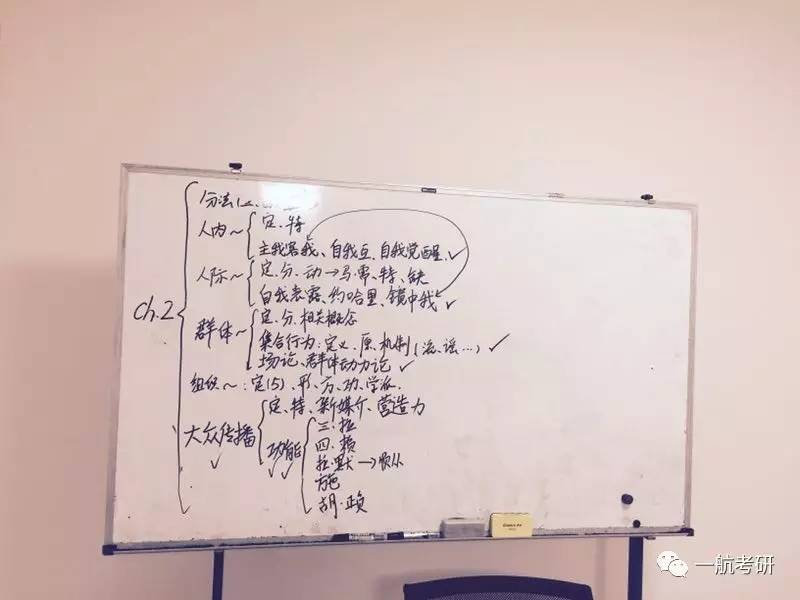 Ch.2
分法
人内~
定、特
主我客我、自我互、自我觉醒 ✓
人际~
定、分、动→马、需、特、缺
自我表露、约哈里、镜中我 ✓
群体~
定、分、相关概念
集合行为:定义、原、机制(流、谣…) ✓
场论、群体动力论 ✓
组织~:定(5)、形、方、功、学派
大众传播 ✓
定、特、新媒介、营造力
功能 ✓✓
三·拉
四·赖
拉·默→顺从
施
胡·正负
一航考研